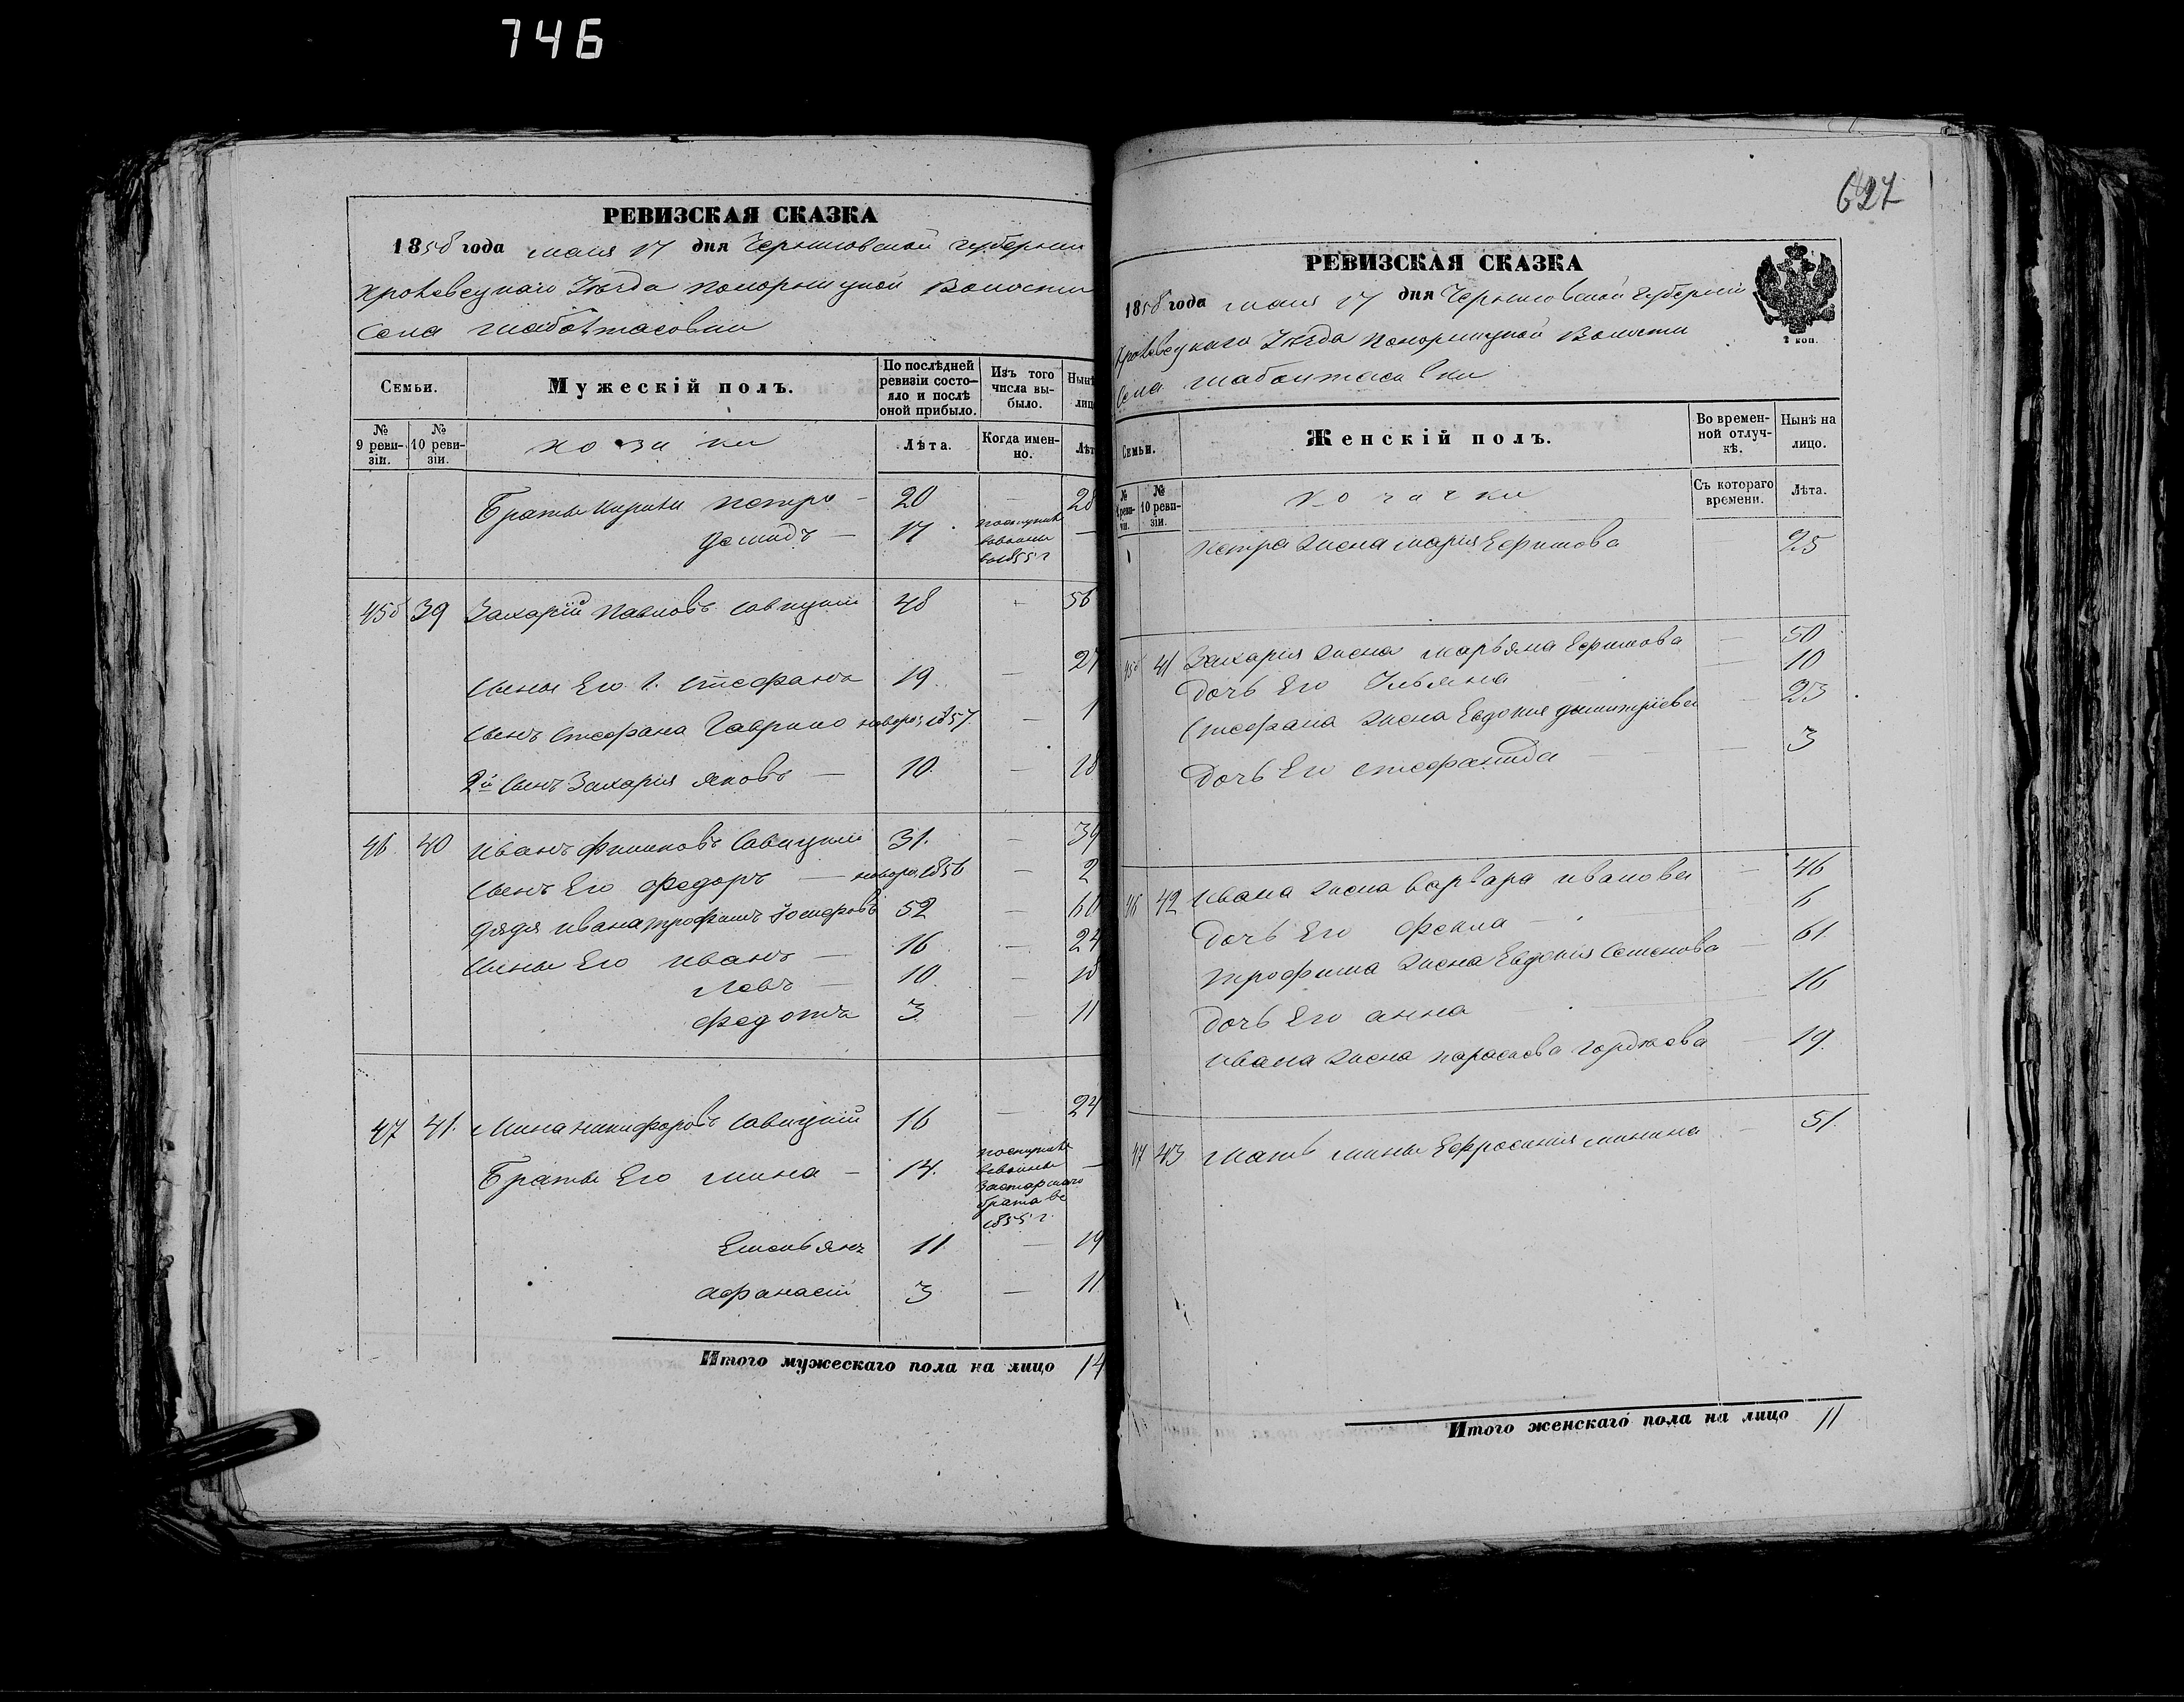 746
РЕВИЗСКАЯ СКАЗКА
1858 года мая 17 дня Черниговской губернии
Кролевецкаго Уѣзда Понорницкой Волости
Села Шаболтасовки
Семьи.
Мужескій полъ.
По послѣдней ревизіи состояло и послѣ оной прибыло.
Изъ того числа выбыло.
Нынѣ лицо
№ 9 ревизіи.
№ 10 ревизіи.
козаки
Лѣта.
Когда именно.
Лѣт
Братья Петръ — 20 — 28
Демидъ — 17 поступилъ 1855 г —
456 39 Захарій Павловъ Савицкій 48 — 56
Сыны Его 1. Стефанъ 19 27
Сынъ Стефана Гаврило новорож 1857. — 1
2й Сынъ Захарія Яковъ — 10. — 18
46. 40 Иванъ Савицкій 31. — 39
Сынъ Его Федоръ — новорож 1856 — 2
Дядя Ивана Трофимъ Іосифовъ 52 — 60
Сыны Его Иванъ — 16 — 24
Левъ — 10. — 18
Федотъ 3. — 11
47 41. Мина Никифоровъ Савицкій 16 — 24
Братья Его Мина — 14. поступилъ
за старшаго
брата въ
1855 г. —
Емельянъ 11. — 19
Афанасій 3 — 11
Итого мужескаго пола на лицо 14
627
РЕВИЗСКАЯ СКАЗКА
1858 года мая 17 дня Черниговской Губерніи
2 коп.
Кролевецкаго Уѣзда Понорницкой Волости
Села Шаболтасовки
Семьи.
Женскій полъ.
Во временной отлучкѣ.
Нынѣ на лицо.
№ 10 ревизіи.
козачки
Съ котораго времени.
Лѣта.
Петра жена Марія Ефимова — 25
41 Захарія жена Марьяна Ефимова — 50
Дочь Его Ульяна — 10
Стефана жена Евдокия Димитріева — 23
Дочь Его Стефанида — 3
46 42 Ивана жена Варвара Иванова — 46
Дочь Его Фекла — 6
Трофима жена Евдокия Семенова — 61.
Дочь Его Анна 16
Ивана жена Параскева Гордѣева — 19.
47 43 Мать Мины Ефросинія Минина — 51.
Итого женскаго пола на лицо 11